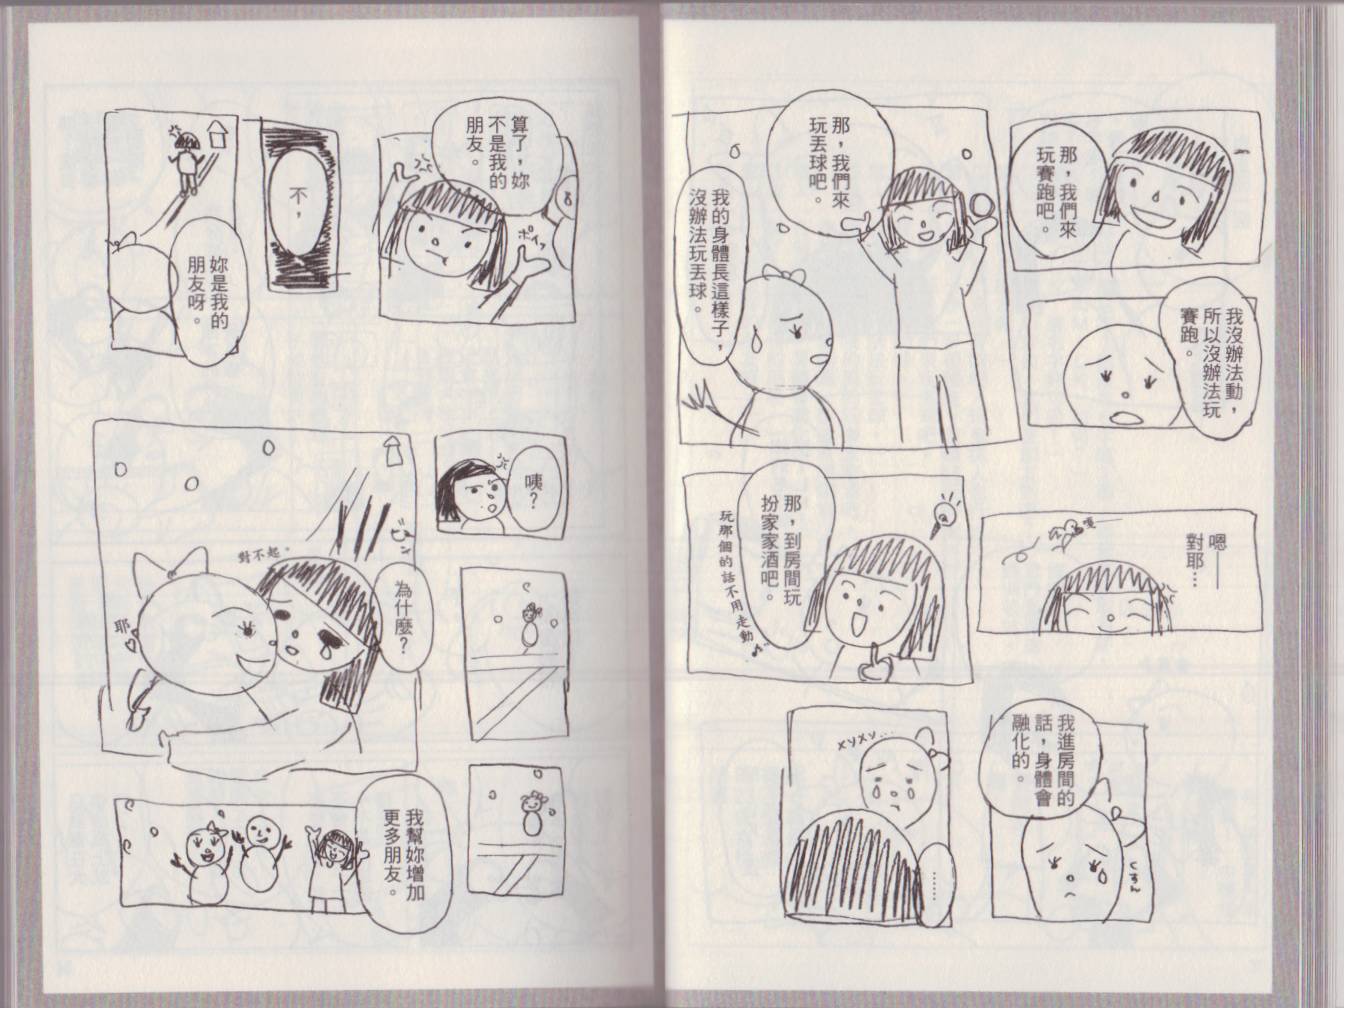 那，我們來
玩賽跑吧。
我沒辦法動，
所以沒辦法玩
賽跑。
那，我們來
玩丟球吧。
我的身體長這樣子，
沒辦法玩丟球。
嗯——
對耶…
嘎
那，到房間玩
扮家家酒吧。
玩那個的話不用走動♪
我進房間的
話，身體會
融化的。
くすん
メソメソ…
……
算了，妳
不是我的
朋友。
ポイッ
不，
妳是我的
朋友呀。
咦？
為什麼？
對不起。
耶
我幫妳增加
更多朋友。